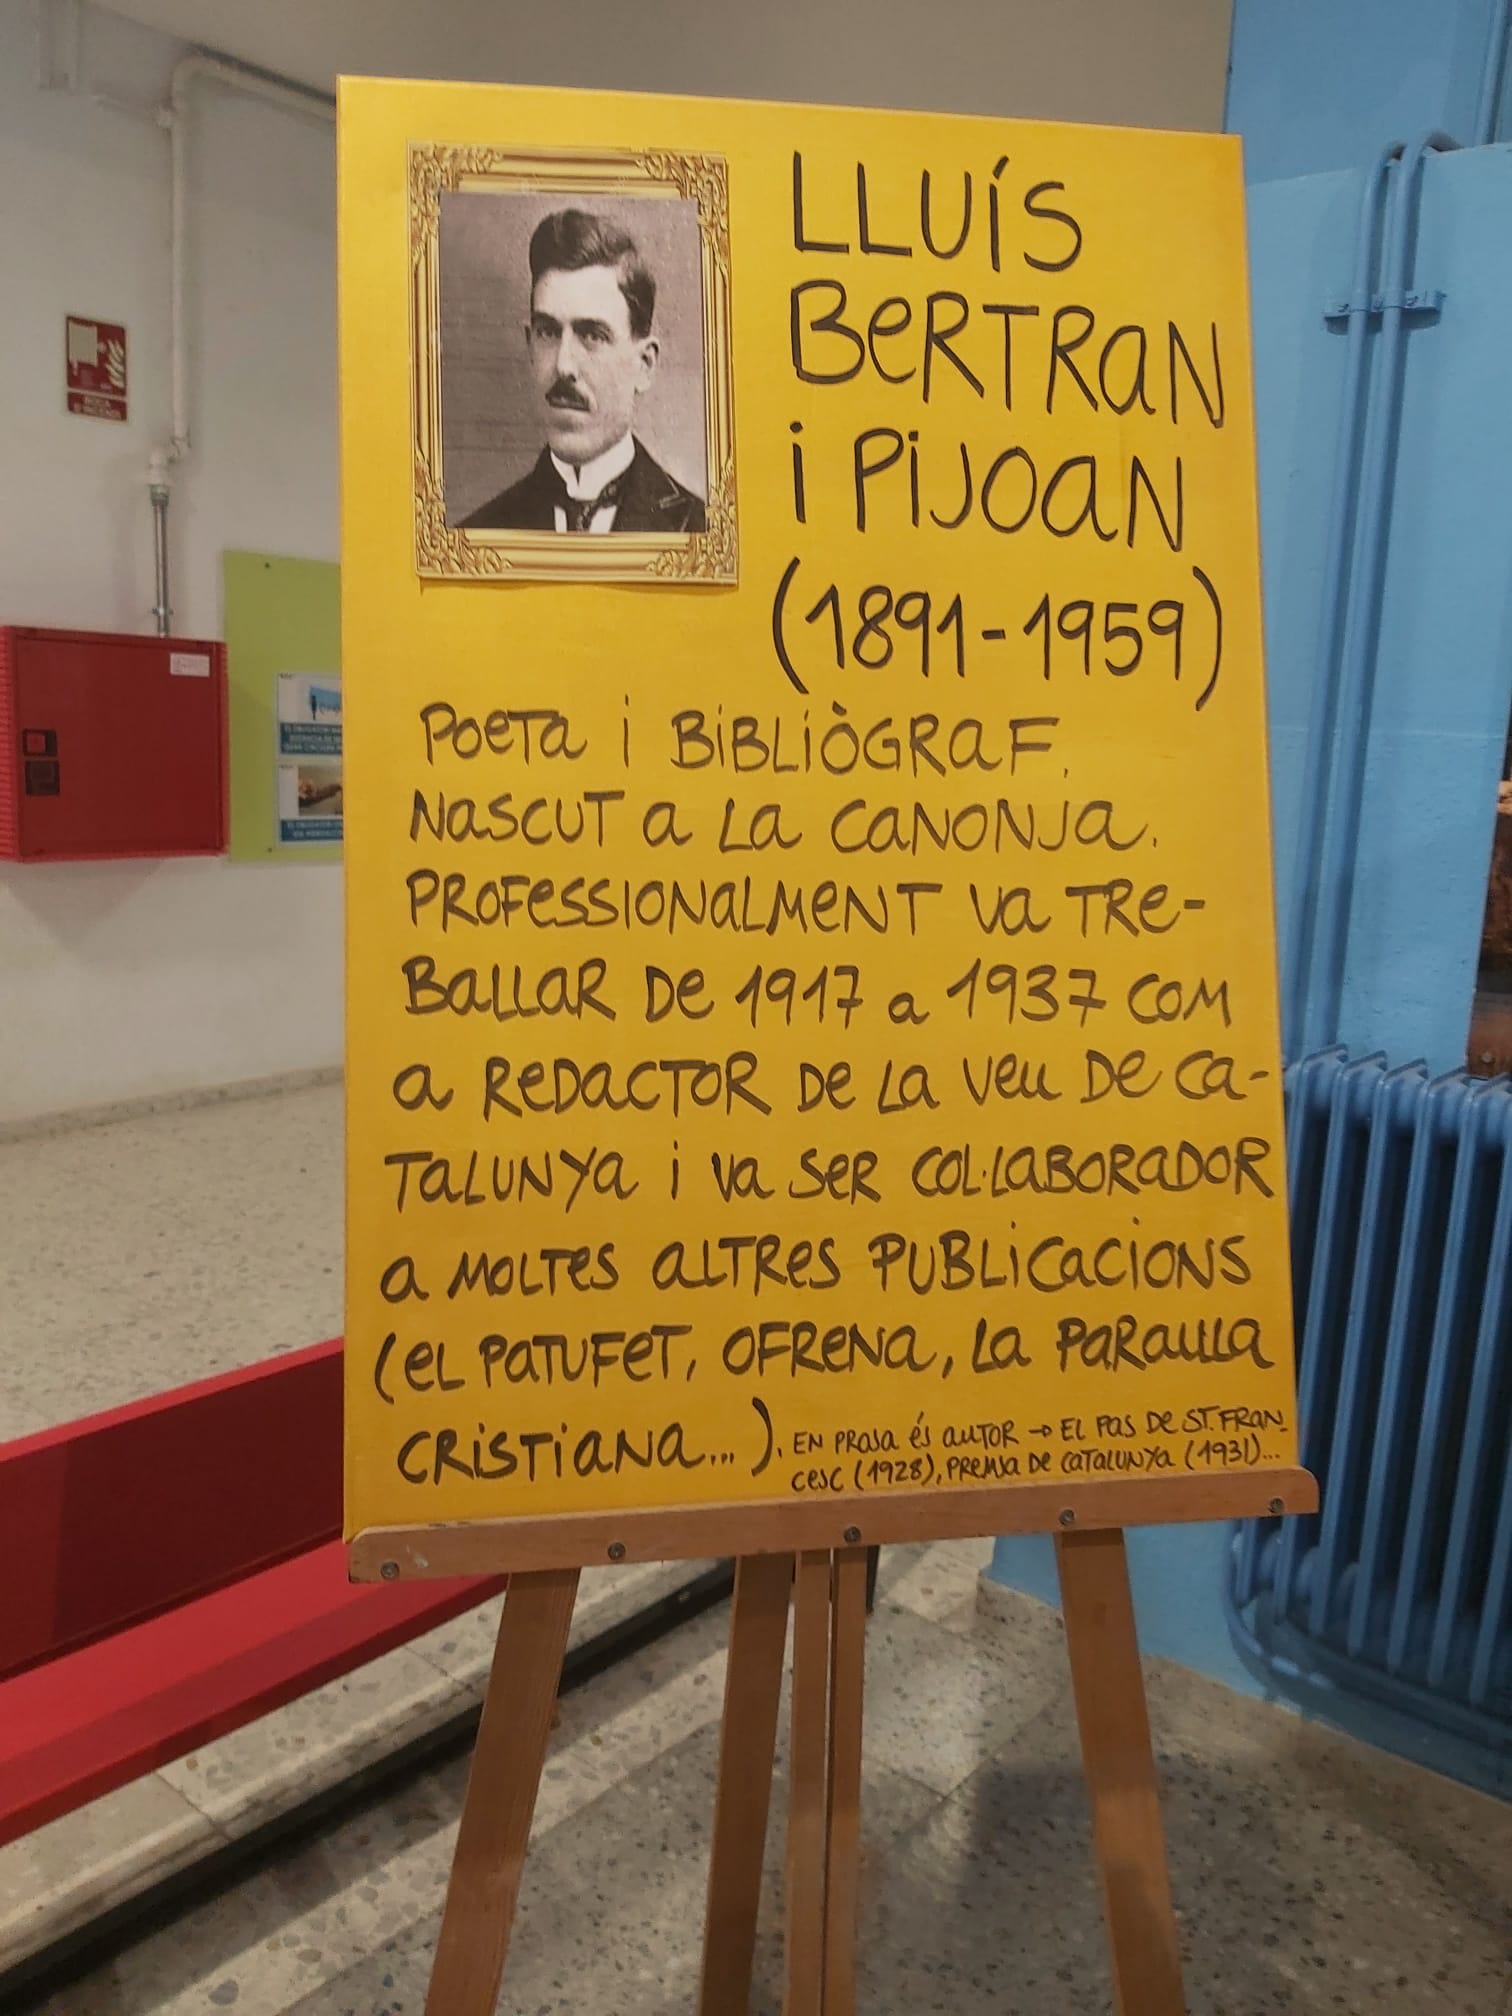 LLUÍS
BERTRAN
i PiJOAN
(1891-1959)
POETA i BiBLiÒGRAF.
NASCUT A LA CANONJA.
PROFESSIONALMENT VA TRE-
BALLAR DE 1917 a 1937 COM
A REDACTOR DE LA VEU DE CA-
TALUNYA i VA SER COL·LABORADOR
A MOLTES ALTRES PUBLiCACiONS
(EL PATUFET, OFRENA, LA PARAULA
CRiSTiANA...). EN PROSA ÉS AUTOR → EL PAS DE ST. FRAN-
CESC (1928), PREMSA DE CATALUNYA (1931)...
BOCA
D'INCENDIS